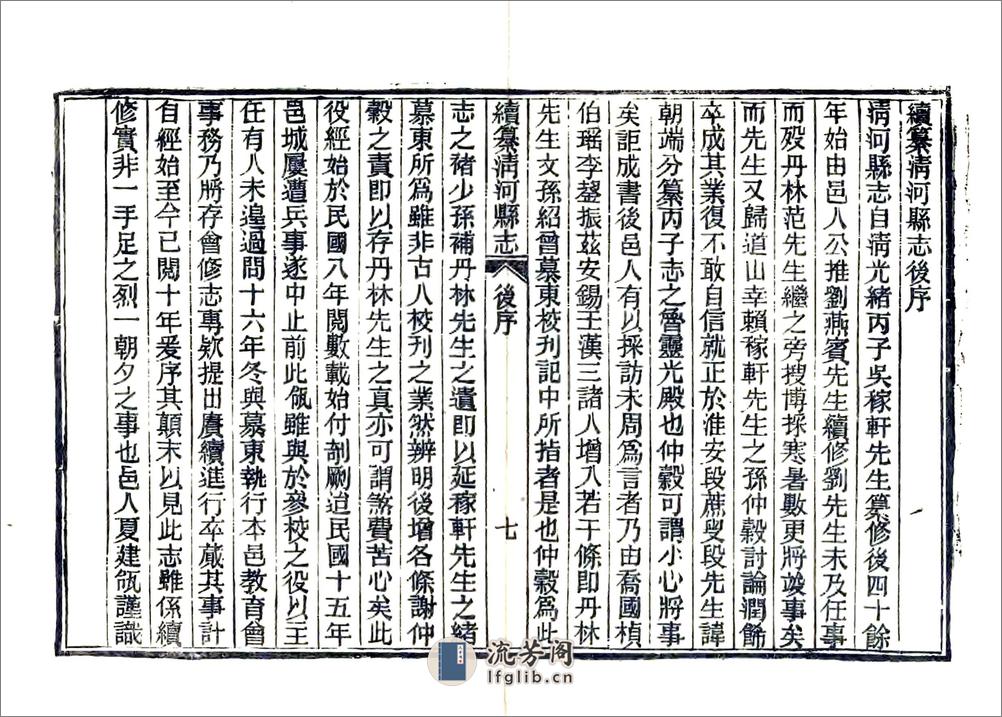 續纂清河縣志後序
清河縣志自清光緒丙子吳稼軒先生纂修後四十餘
年始由邑人公推劉燕賓先生續修劉先生未及任事
而歿丹林范先生繼之旁搜博採寒暑數更將竣事矣
而先生又歸道山幸賴稼軒先生之孫仲穀討論潤餙
卒成其業復不敢自信就正於淮安段蔗叟段先生諱
朝端分纂丙子志之魯靈光殿也仲穀可謂小心將事
矣詎成書後邑人有以採訪未周為言者乃由喬國楨
伯瑶李鋆振茲安錫王漢三諸人增入若干條即丹林
先生文孫紹曾慕東校刋記中所指者是也仲穀為此
續纂清河縣志 後序 七
志之豬少孫補丹林先生之遺即以延稼軒先生之緒
慕東所為雖非古人校刋之業然辨明後增各條謝仲
穀之責即以存丹林先生之真亦可謂煞費苦心矣此
役經始於民國八年閱數載始付剞劂迨民國十五年
邑城屢遭兵事遂中止前此瓴雖與於參校之役以主
任有人未遑過問十六年冬與慕東執行本邑教育會
事務乃將存會修志專欵提出賡續進行卒蕆其事計
自經始至今已閱十年爰序其顛末以見此志雖係續
修實非一手足之烈一朝夕之事也邑人夏建瓴謹識
流芳阁
lfglib.cn